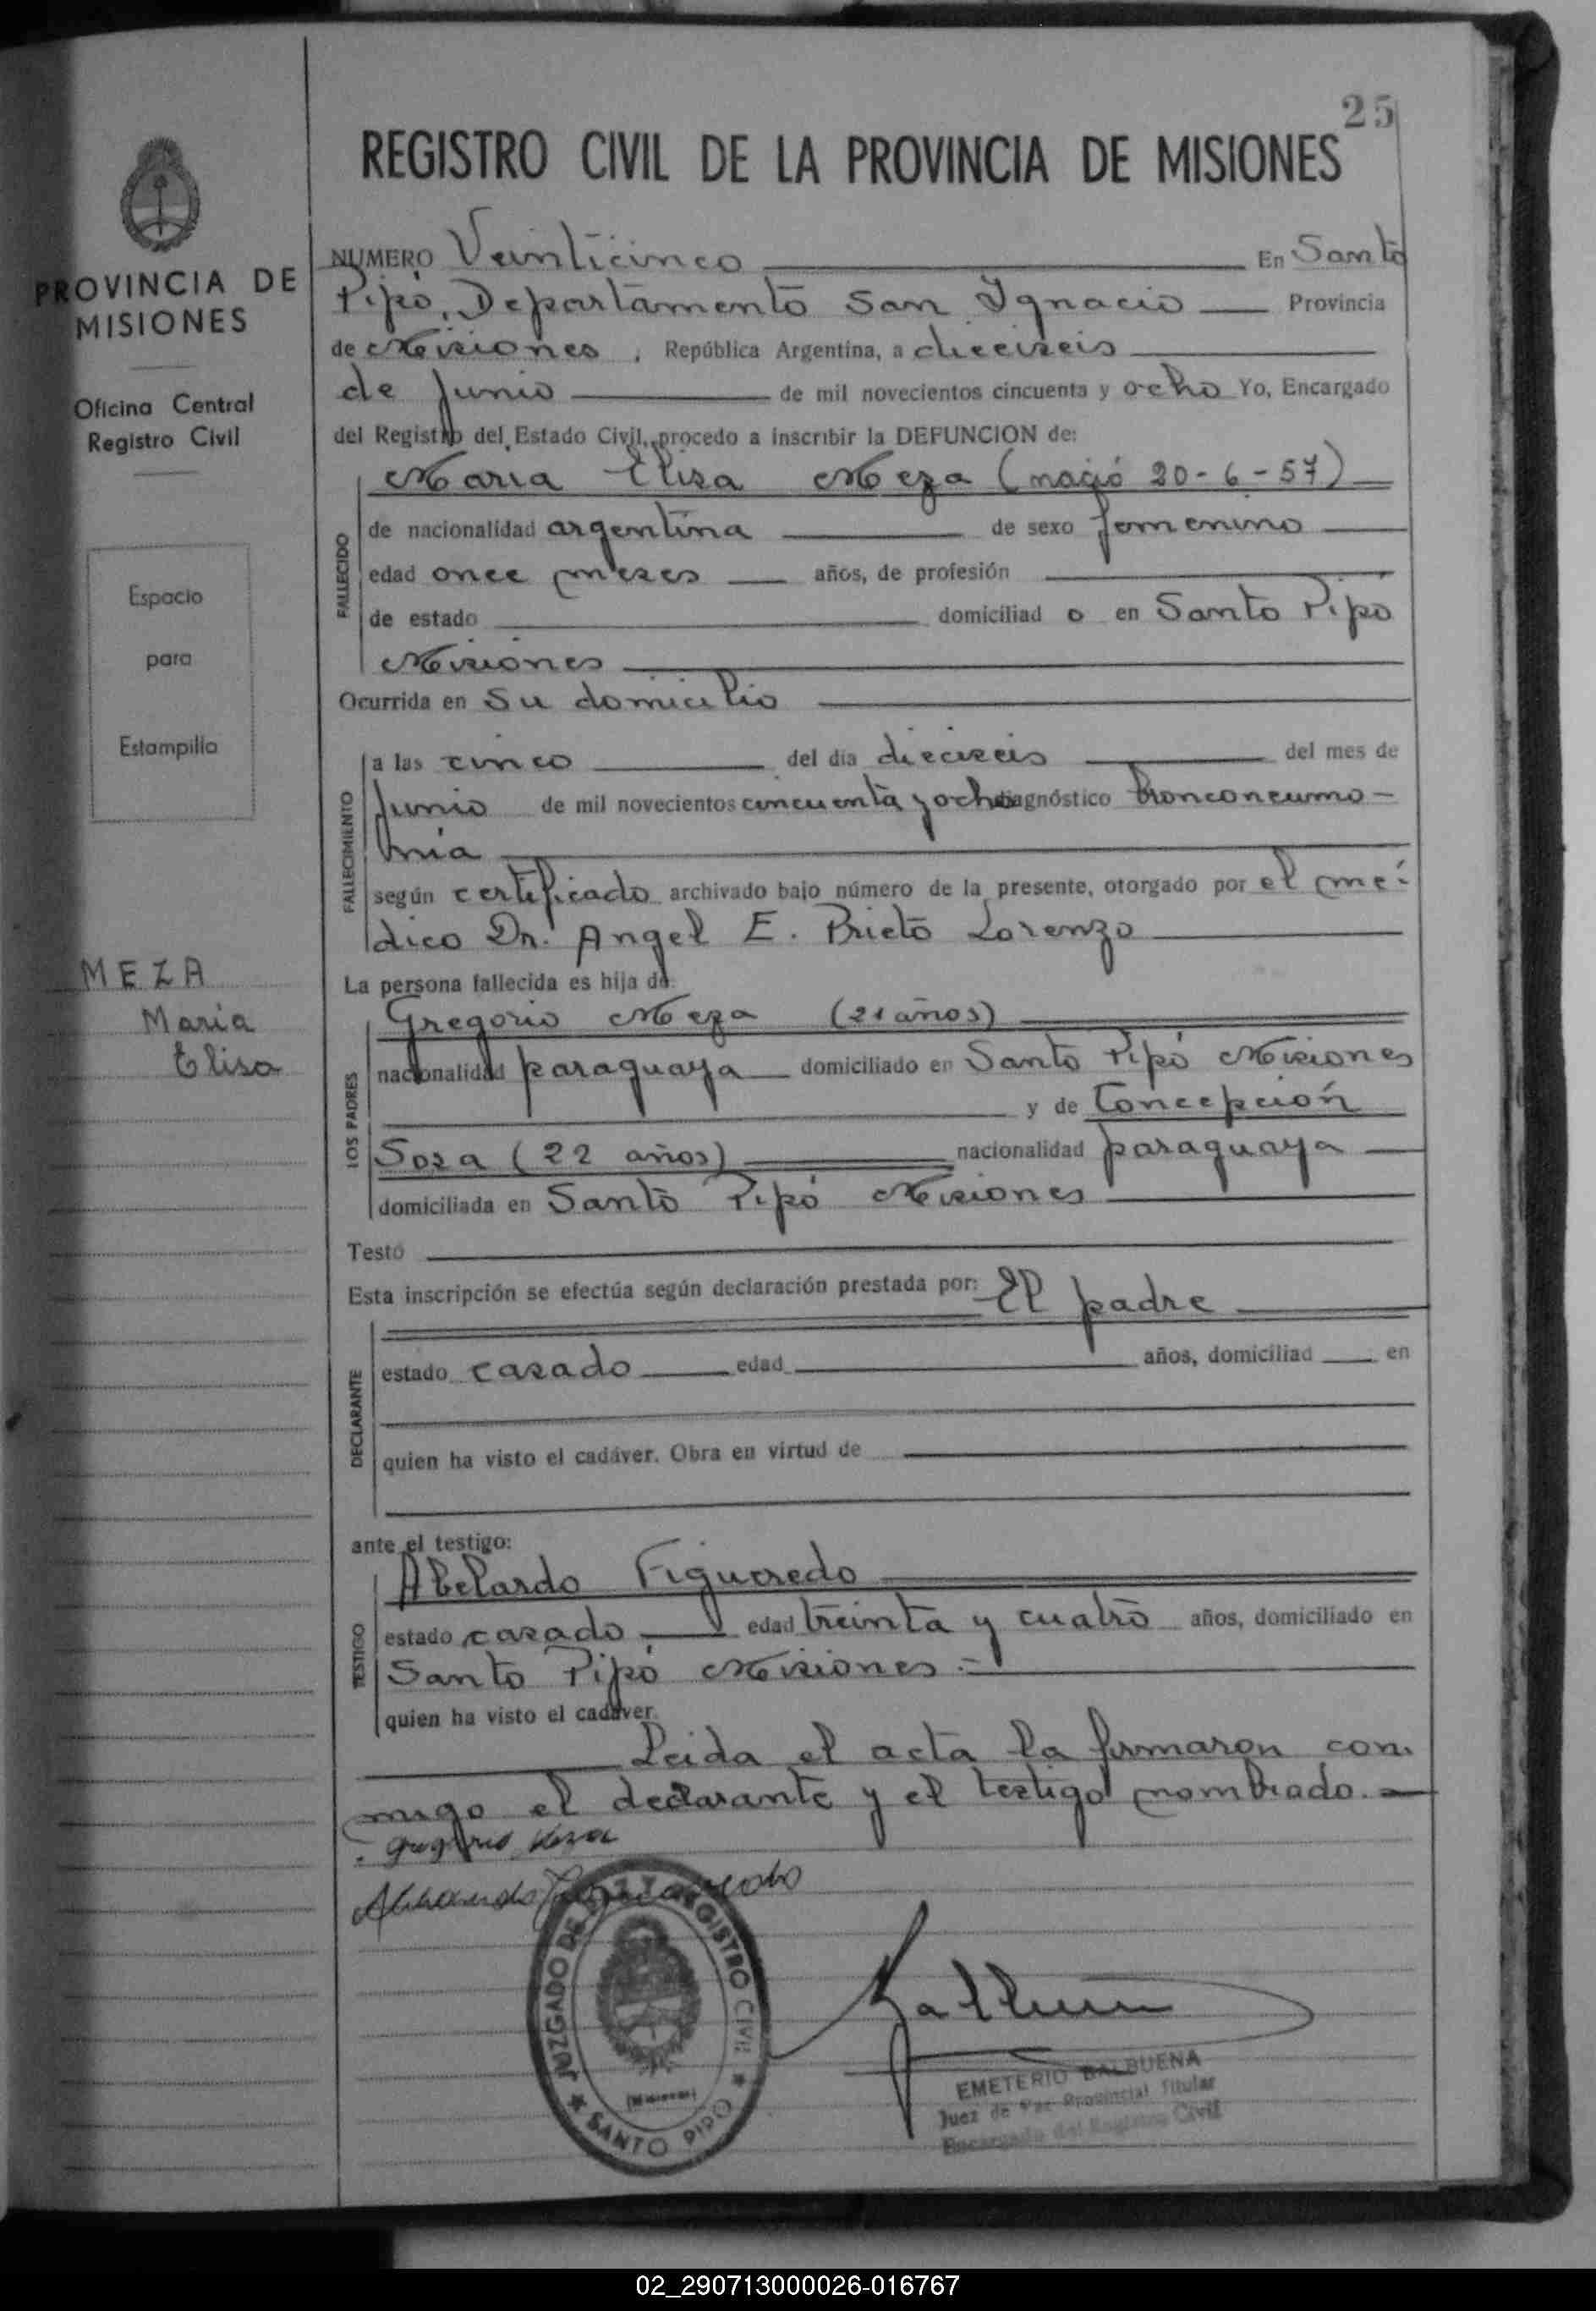 25
REGISTRO CIVIL DE LA PROVINCIA DE MISIONES
PROVINCIA DE
MISIONES
Oficina Central
Registro Civil
Espacio
para
Estampilla
MEZA
Maria
Elisa
NUMERO Veinticinco En Santo
Pipó, Departamento San Ignacio Provincia
de Misiones, República Argentina, a dieciseis
de Junio de mil novecientos cincuenta y ocho Yo, Encargado
del Registro del Estado Civil, procedo a inscribir la DEFUNCION de:
FALLECIDO
Maria Elisa Meza (nació 20-6-57)
de nacionalidad argentina de sexo femenino
edad once meses años, de profesión
de estado domiciliad o en Santo Pipó
Misiones
Ocurrida en Su domicilio
FALLECIMIENTO
a las cinco del día dieciseis del mes de
Junio de mil novecientos cincuenta y ocho diagnóstico bronconeumo-
nia
según certificado archivado bajo número de la presente, otorgado por el mé-
dico Dr. Angel E. Prieto Lorenzo
La persona fallecida es hija de:
LOS PADRES
Gregorio Meza (21 años)
nacionalidad paraguaya domiciliado en Santo Pipó Misiones
y de Concepción
Sosa (22 años) nacionalidad paraguaya
domiciliada en Santo Pipó Misiones
Testó
Esta inscripción se efectúa según declaración prestada por: El padre
DECLARANTE
estado casado edad años, domiciliad en
quien ha visto el cadáver. Obra en virtud de
ante el testigo:
TESTIGO
Abelardo Figueredo
estado casado edad treinta y cuatro años, domiciliado en
Santo Pipó Misiones.-
quien ha visto el cadáver.
Leida el acta la firmaron con-
migo el declarante y el testigo nombrado.-
Gregorio Meza
JUZGADO DE PAZ Y REGISTRO CIVIL
(Misiones)
SANTO PIPO
EMETERIO BALBUENA
Juez de Paz Provincial Titular
Encargado del Registro Civil
02_290713000026-016767